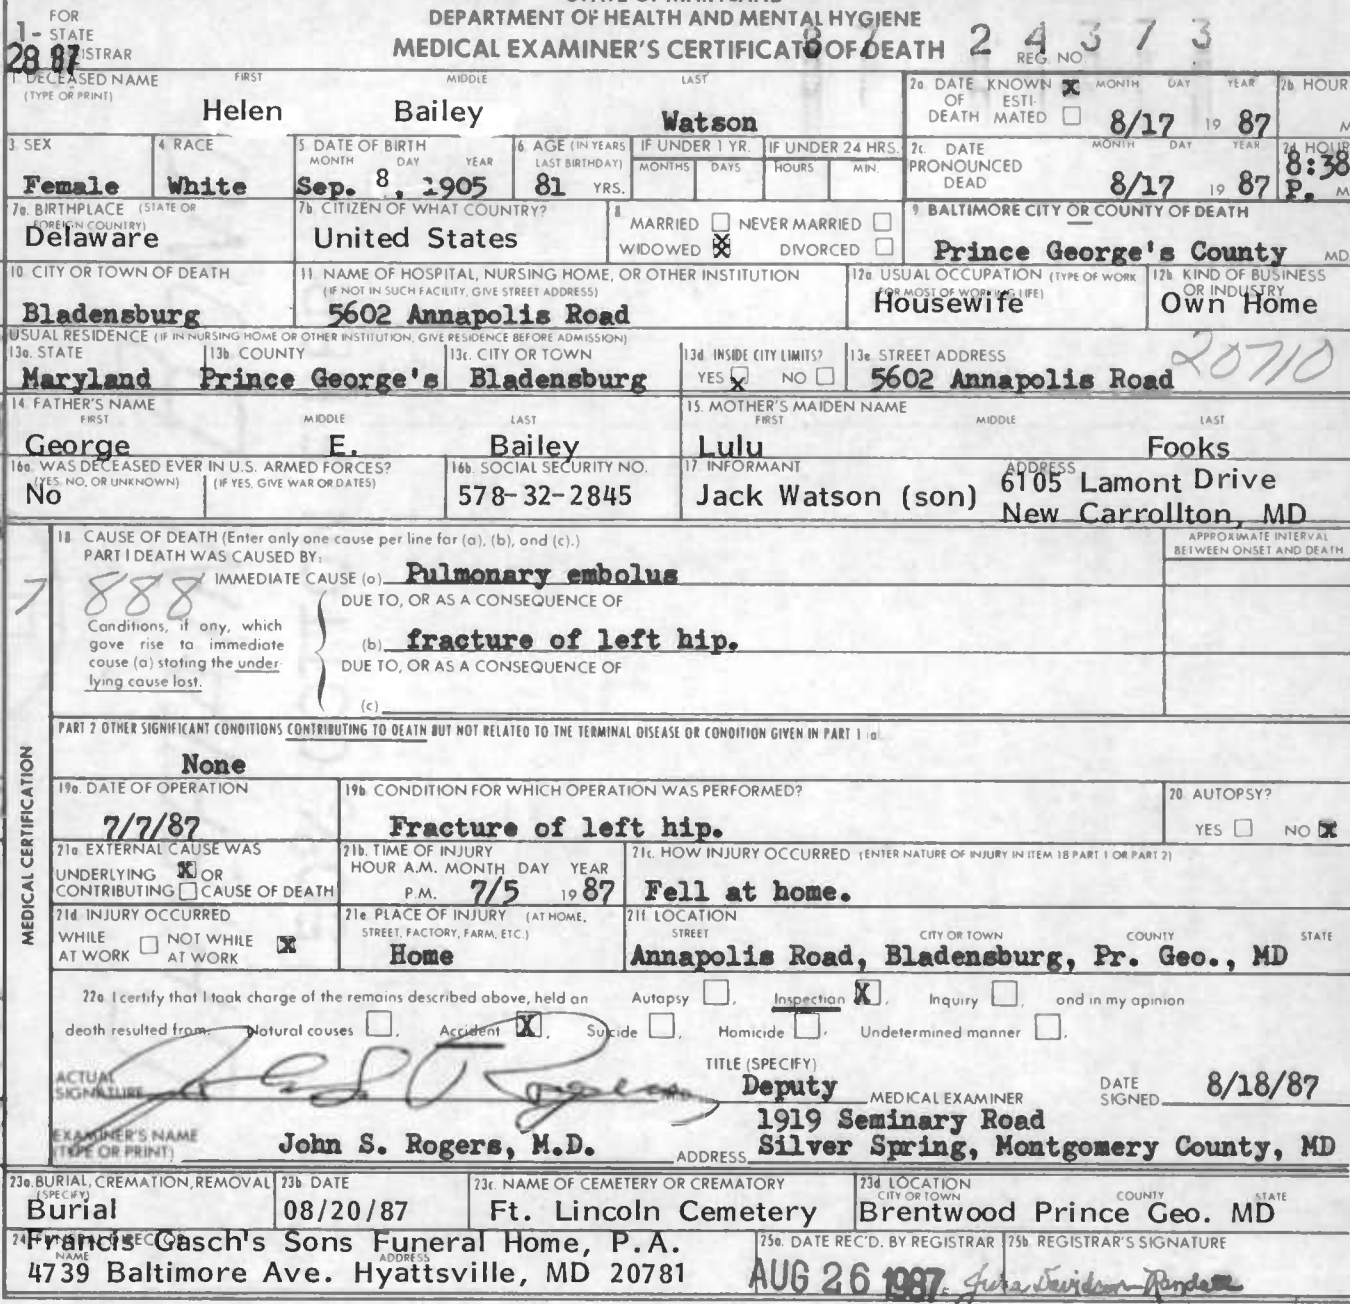 FOR
1- STATE
REGISTRAR
28 87
DEPARTMENT OF HEALTH AND MENTAL HYGIENE
MEDICAL EXAMINER'S CERTIFICATE OF DEATH
87 24373
REG. NO.
1. DECEASED NAME FIRST MIDDLE LAST
(TYPE OR PRINT)
Helen Bailey Watson
2a. DATE KNOWN X MONTH DAY YEAR 2b. HOUR
OF ESTI-
DEATH MATED 8/17 19 87 M
3. SEX 4. RACE 5. DATE OF BIRTH 6. AGE (IN YEARS IF UNDER 1 YR. IF UNDER 24 HRS.
MONTH DAY YEAR LAST BIRTHDAY) MONTHS DAYS HOURS MIN.
Female White Sep. 8, 1905 81 YRS.
2c. DATE MONTH DAY YEAR 2d. HOUR
PRONOUNCED
DEAD 8/17 19 87 8:38 P. M
7a. BIRTHPLACE (STATE OR
FOREIGN COUNTRY)
Delaware
7b. CITIZEN OF WHAT COUNTRY?
United States
8. MARRIED NEVER MARRIED
WIDOWED X DIVORCED
9. BALTIMORE CITY OR COUNTY OF DEATH
Prince George's County MD
10. CITY OR TOWN OF DEATH
Bladensburg
11. NAME OF HOSPITAL, NURSING HOME, OR OTHER INSTITUTION
(IF NOT IN SUCH FACILITY, GIVE STREET ADDRESS)
5602 Annapolis Road
12a. USUAL OCCUPATION (TYPE OF WORK
FOR MOST OF WORKING LIFE)
Housewife
12b. KIND OF BUSINESS
OR INDUSTRY
Own Home
USUAL RESIDENCE (IF IN NURSING HOME OR OTHER INSTITUTION, GIVE RESIDENCE BEFORE ADMISSION)
13a. STATE 13b. COUNTY 13c. CITY OR TOWN 13d. INSIDE CITY LIMITS? 13e. STREET ADDRESS
Maryland Prince George's Bladensburg YES X NO 5602 Annapolis Road 20710
14. FATHER'S NAME
FIRST MIDDLE LAST
George E. Bailey
15. MOTHER'S MAIDEN NAME
FIRST MIDDLE LAST
Lulu Fooks
16a. WAS DECEASED EVER IN U.S. ARMED FORCES?
(YES, NO, OR UNKNOWN) (IF YES, GIVE WAR OR DATES)
No
16b. SOCIAL SECURITY NO.
578-32-2845
17. INFORMANT ADDRESS
Jack Watson (son) 6105 Lamont Drive
New Carrollton, MD
18. CAUSE OF DEATH (Enter only one cause per line for (a), (b), and (c).)
PART I DEATH WAS CAUSED BY:
APPROXIMATE INTERVAL
BETWEEN ONSET AND DEATH
IMMEDIATE CAUSE (a) Pulmonary embolus
7 888
DUE TO, OR AS A CONSEQUENCE OF
Conditions, if any, which
gave rise to immediate
cause (a) stating the under-
lying cause last.
(b) fracture of left hip.
DUE TO, OR AS A CONSEQUENCE OF
(c)
PART 2 OTHER SIGNIFICANT CONDITIONS CONTRIBUTING TO DEATH BUT NOT RELATED TO THE TERMINAL DISEASE OR CONDITION GIVEN IN PART 1 (a)
None
MEDICAL CERTIFICATION
19a. DATE OF OPERATION
7/7/87
19b. CONDITION FOR WHICH OPERATION WAS PERFORMED?
Fracture of left hip.
20. AUTOPSY?
YES NO X
21a. EXTERNAL CAUSE WAS
UNDERLYING X OR
CONTRIBUTING CAUSE OF DEATH
21b. TIME OF INJURY
HOUR A.M. MONTH DAY YEAR
P.M. 7/5 19 87
21c. HOW INJURY OCCURRED (ENTER NATURE OF INJURY IN ITEM 18 PART 1 OR PART 2)
Fell at home.
21d. INJURY OCCURRED
WHILE NOT WHILE X
AT WORK AT WORK
21e. PLACE OF INJURY (AT HOME,
STREET, FACTORY, FARM, ETC.)
Home
21f. LOCATION
STREET CITY OR TOWN COUNTY STATE
Annapolis Road, Bladensburg, Pr. Geo., MD
22a. I certify that I took charge of the remains described above, held an Autopsy, Inspection X, Inquiry, and in my opinion
death resulted from: Natural causes, Accident X, Suicide, Homicide, Undetermined manner.
ACTUAL
SIGNATURE John S. Rogers
TITLE (SPECIFY)
Deputy MEDICAL EXAMINER
DATE
SIGNED 8/18/87
EXAMINER'S NAME
(TYPE OR PRINT) John S. Rogers, M.D.
1919 Seminary Road
ADDRESS Silver Spring, Montgomery County, MD
23a. BURIAL, CREMATION, REMOVAL
(SPECIFY)
Burial
23b. DATE
08/20/87
23c. NAME OF CEMETERY OR CREMATORY
Ft. Lincoln Cemetery
23d. LOCATION
CITY OR TOWN COUNTY STATE
Brentwood Prince Geo. MD
24. FUNERAL DIRECTOR
Francis Gasch's Sons Funeral Home, P.A.
NAME ADDRESS
4739 Baltimore Ave. Hyattsville, MD 20781
25a. DATE REC'D. BY REGISTRAR
AUG 26 1987
25b. REGISTRAR'S SIGNATURE